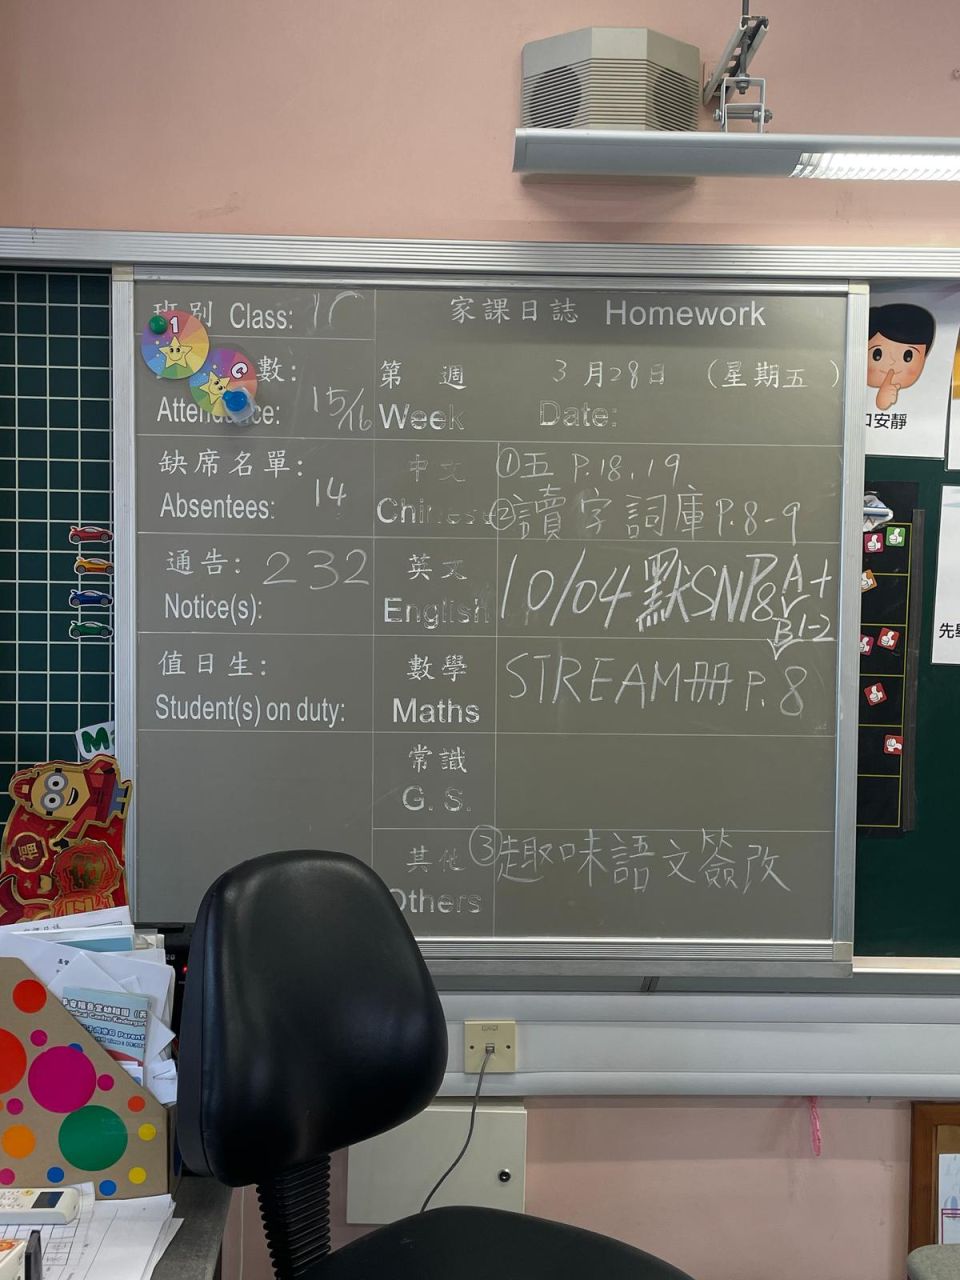 班別 Class: 1C
家課日誌 Homework
1
C
數:
Attendance: 15/16
第 週 3月28日 (星期五)
Week Date:
缺席名單:
Absentees: 14
中文 ①五 P.18, 19
Chinese ②讀字詞庫P.8-9
通告: 232
Notice(s):
英文
English 10/04 默SNP8 A+
B1-2
值日生:
Student(s) on duty:
數學
Maths STREAM冊 P.8
常識
G. S.
其他 ③趣味語文簽改
Others
口安靜
福